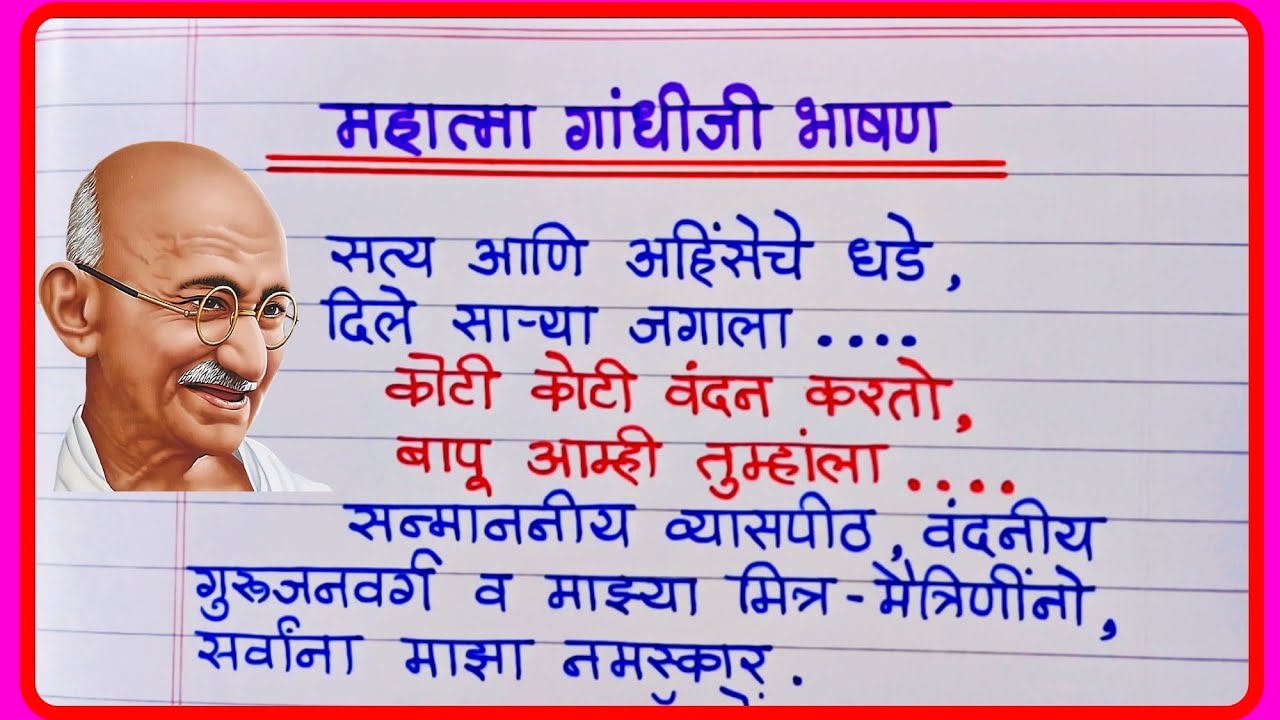 महात्मा गांधीजी भाषण
सत्य आणि अहिंसेचे धडे,
दिले साऱ्या जगाला ....
कोटी कोटी वंदन करतो,
बापू आम्ही तुम्हांला ....
सन्माननीय व्यासपीठ, वंदनीय
गुरूजनवर्ग व माझ्या मित्र-मैत्रिणींनो,
सर्वांना माझा नमस्कार.